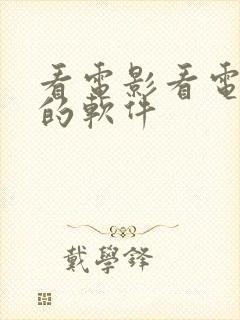 看電影看電
的軟件
戴學鋒